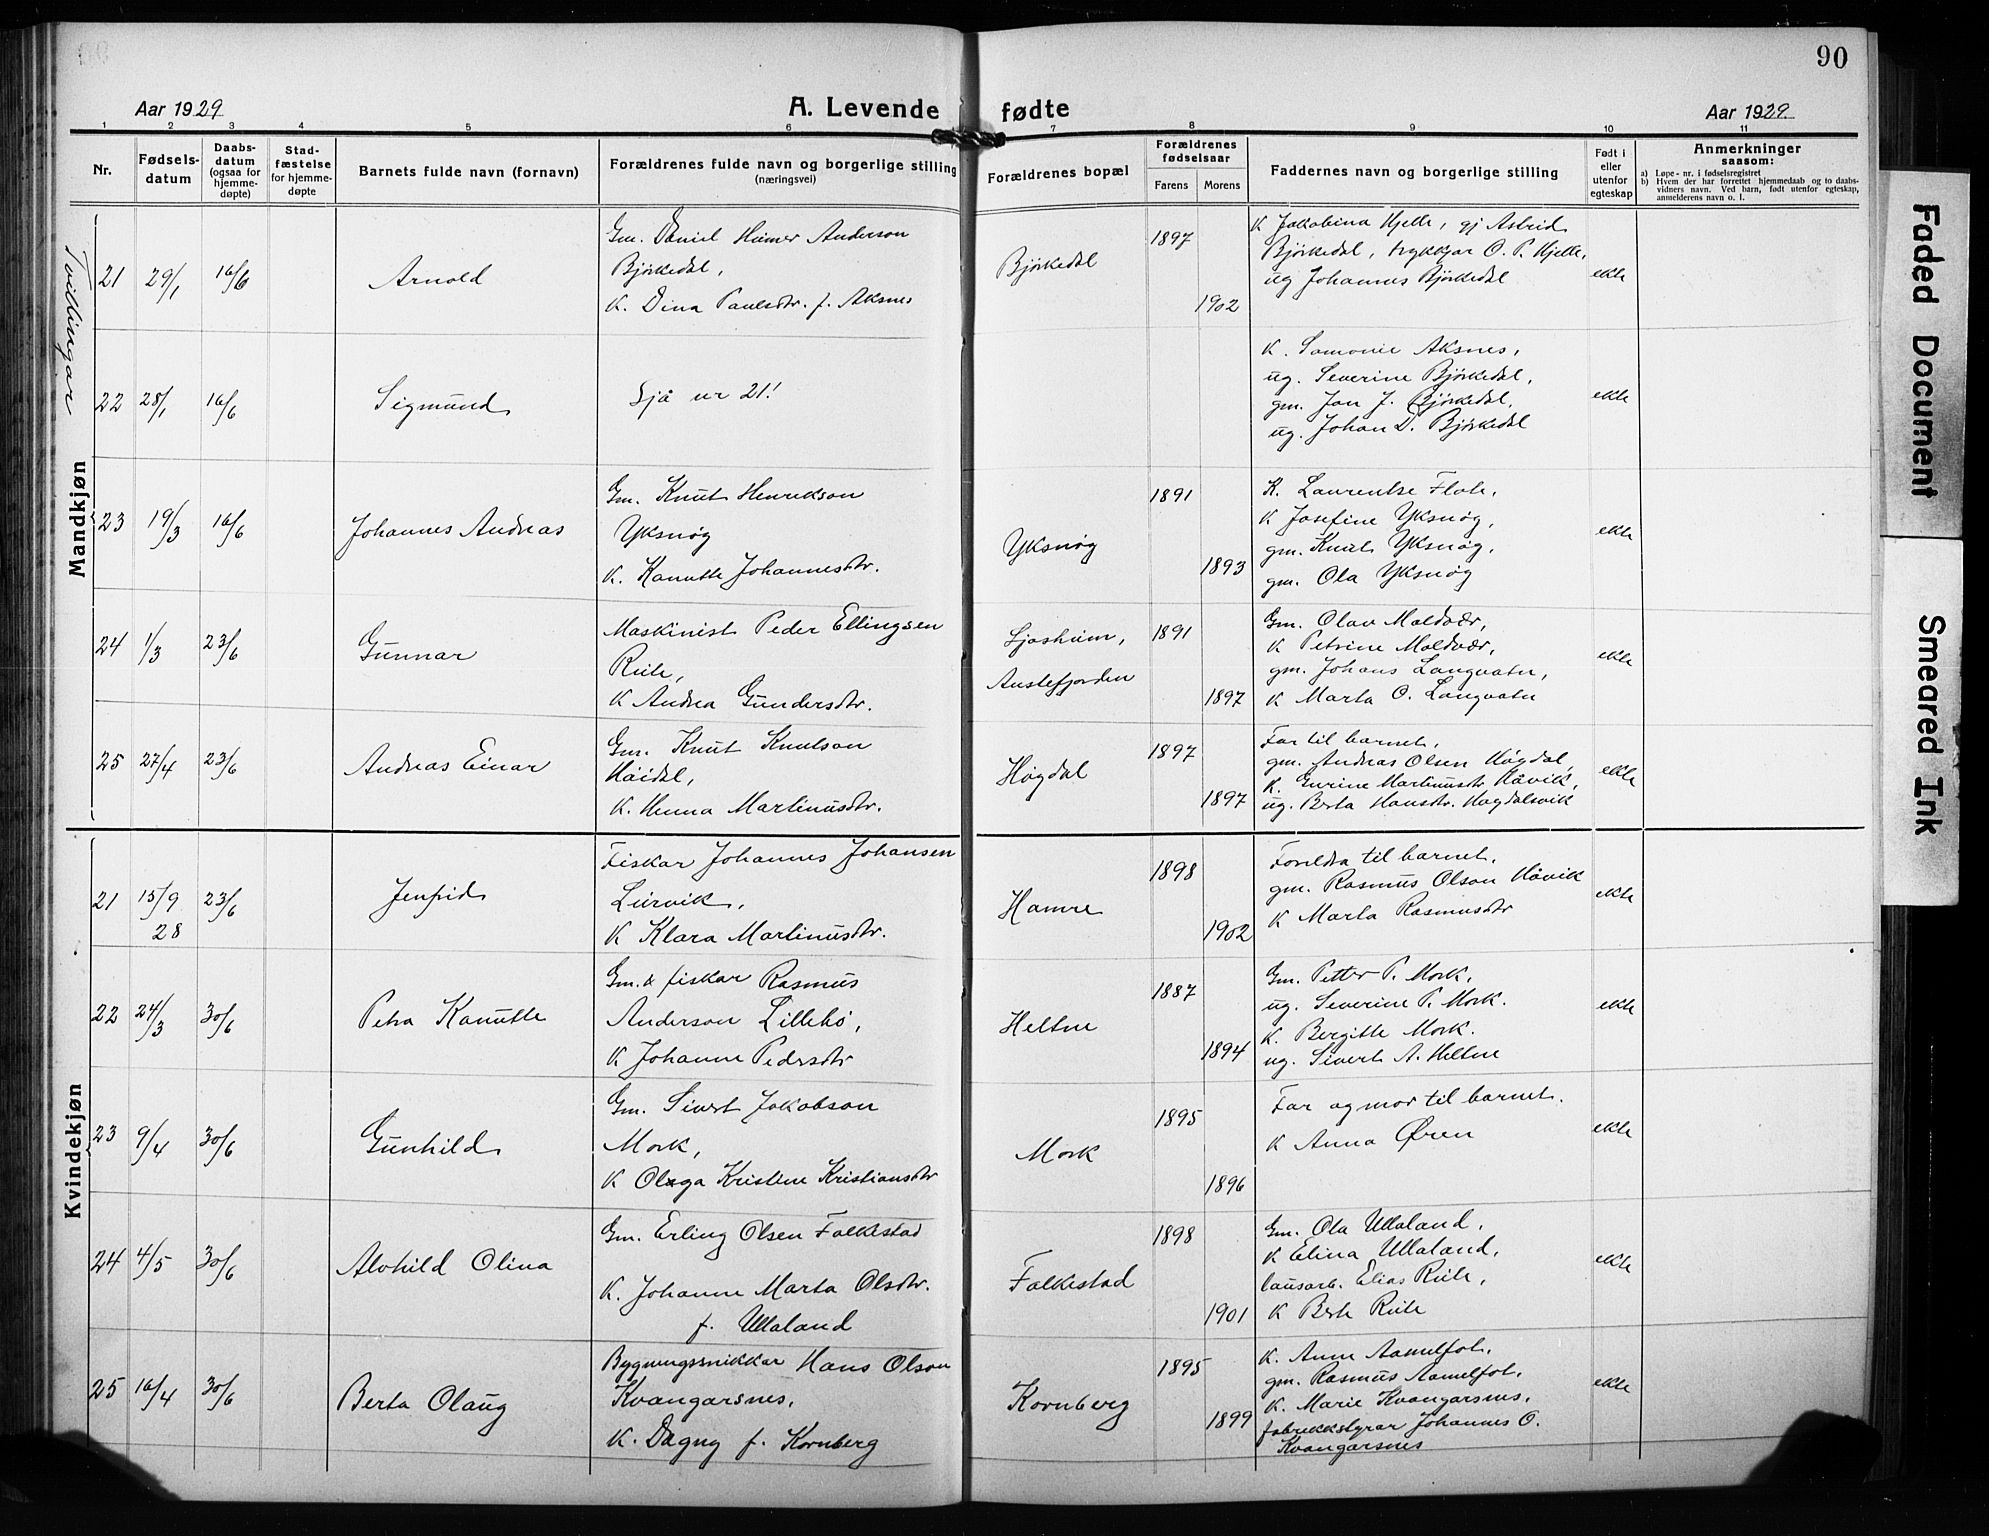 90
Aar 1929
A. Levende fødte
Aar 1929.
1 2 3 4 5 6 7 8 9 10 11
Nr.
Fødsels-
datum
Daabs-
datum
(ogsaa for
hjemme-
døpte)
Stad-
fæstelse
for hjemme-
døpte
Barnets fulde navn (fornavn)
Forældrenes fulde navn og borgerlige stilling
(næringsvei)
Forældrenes bopæl
Forældrenes
fødselsaar
Farens
Morens
Faddernes navn og borgerlige stilling
Født i
eller
utenfor
egteskap
Anmerkninger
saasom:
a) Løpe-nr. i fødselsregistret
b) Hvem der har forrettet hjemmedaab og to daabs-
vidners navn. Ved barn, født utenfor egteskap,
anmelderens navn o. l.
Tvillingar
Mandkjøn
21 29/1 16/6 Arnold
Gm. Daniel Heimer Anderson
Bjørkedal,
K. Dina Paulsdtr. f. Aksnes
Bjørkedal
1897
1902
K Jakobina Hjelle, gj Astrid
Bjørkedal, kykkjar O. P. Hjelle,
ug Johannes Bjørkedal
ekte
22 28/1 16/6 Sigmund
Sjå nr 21!
K. Samonie Aksnes,
ug. Severine Bjørkedal,
gm. Jon J. Bjørkedal,
ug. Johan D. Bjørkedal
ekte
23 19/3 16/6 Johannes Andreas
Gm. Knut Henrikson
Yksnøg
K. Kanutte Johannesdtr.
Yksnøg
1891
1893
K. Laurentse Flote,
K Josefine Yksnøg,
gm. Knut Yksnøg,
gm. Ola Yksnøg
ekte
24 1/3 23/6 Gunnar
Maskinist Peder Ellingsen
Riite,
K Andrea Gundersdtr.
Ljosheim,
Austefjorden
1891
1897
Gm. Olav Maldvær,
K Petrine Maldvær,
gm. Johans Langvatn,
K Marta O. Langvatn
ekte
25 27/4 23/6 Andreas Einar
Gm. Knut Knutson
Håidal,
K. Henna Martinusdtr.
Høgdal
1897
1897
Far til barnet,
gm. Andreas Olsen Høgdal,
K. Gurine Martinusdtr Håvik,
ug. Berta Hansdtr. Høgdalsvik
ekte
Kvindekjøn
21 15/9 28 23/6 Jenfrid
Fiskar Johannes Johansen
Lurvik,
K Klara Martinusdtr.
Hamre
1898
1902
Foreldra til barnet,
gm. Rasmus Olson Håvik
K Marta Rasmusdtr
ekte
22 24/3 30/6 Petra Kanutte
Gm. & fiskar Rasmus
Anderson Lillebö,
K Johanne Pedersdtr
Heltne
1887
1894
Gm. Petter P. Mork,
ug. Severine P. Mork.
K. Bergitte Mork.
ug. Sivert A. Heltne
ekte
23 9/4 30/6 Gunhild
Gm. Sivert Jakobson
Mork,
K Olaga Kristine Kristiansdtr
Mork
1895
1896
Far og mor til barnet.
K Anna Øren
ekte
24 4/5 30/6 Alvhild Olina
Gm. Erling Olsen Falkestad
K. Johanne Marta Olsdtr.
f. Ullaland
Falkestad
1898
1901
Gm. Ola Ullaland,
K Elina Ullaland,
lausarb. Elias Riite,
K Berte Riite
ekte
25 16/4 30/6 Berta Olaug
Bygningssnikkar Hans Olson
Kvangarsnes,
K. Dagny f. Kornberg
Kornberg
1895
1899
K. Anne Aamelfot,
gm. Rasmus Aamelfot,
K. Marie Kvangarsnes,
fabrikkstyrar Johannes O.
Kvangarsnes
ekte
Faded Document
Smeared Ink